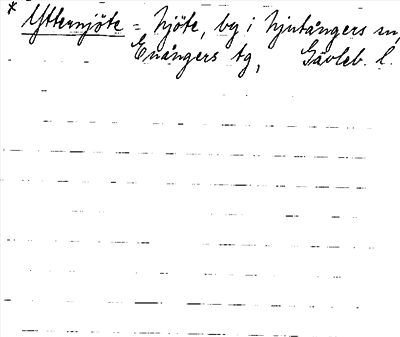 * Ytternjöte = Njöte, by i Njutångers sn,
Enångers tg, Gävleb. l.